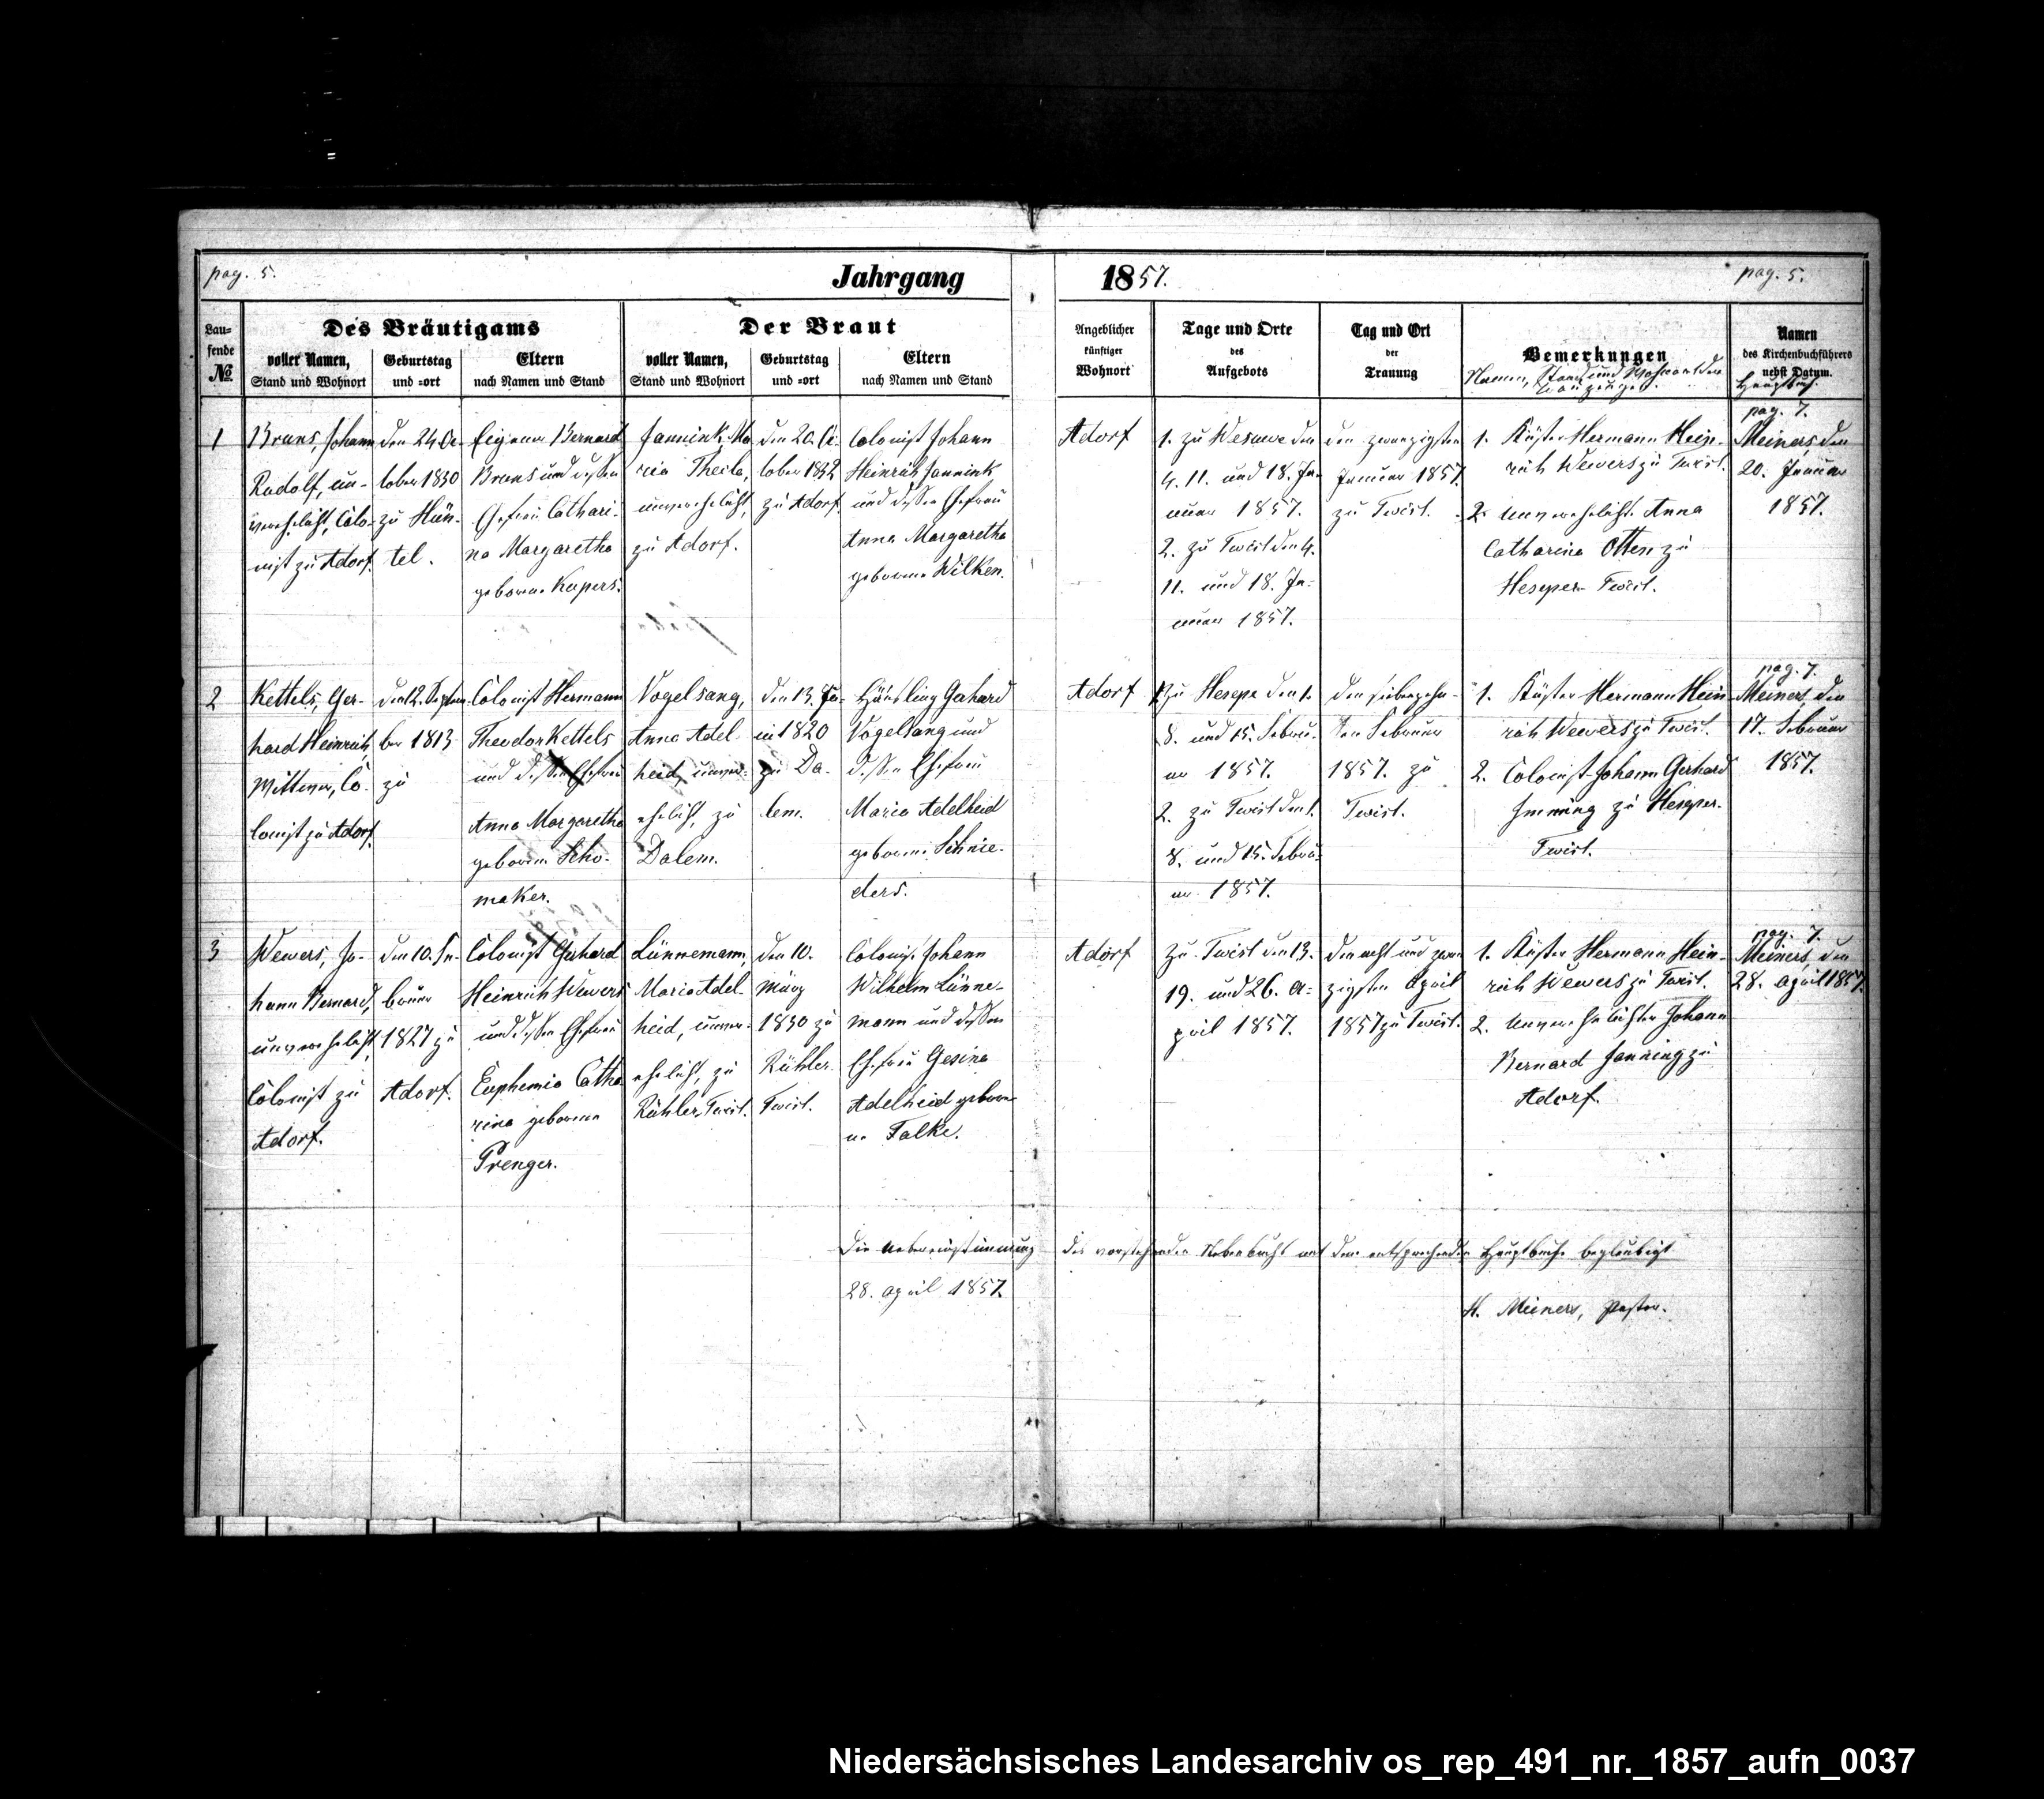 pag. 5.
Jahrgang 1857.
pag. 5.
Lau=
fende
No
Des Bräutigams
voller Namen,
Stand und Wohnort
Geburtstag
und =ort
Eltern
nach Namen und Stand
Der Braut
voller Namen,
Stand und Wohnort
Geburtstag
und =ort
Eltern
nach Namen und Stand
Angeblicher
künftiger
Wohnort
Tage und Orte
des
Aufgebots
Tag und Ort
der
Trauung
Bemerkungen
Namen, Stand und Wohnort der
Trauzeugen
Namen
des Kirchenbuchführers
nebst Datum.
Hauptbuch.
1
Bruns, Johann
Rudolf, un-
verehelicht, Colo-
nist zu Adorf.
den 24 Oc-
tober 1830
zu Hün-
tel.
Eigener Bernard
Bruns und dessen
Ehefrau Cathari-
na Margaretha
geborene Kupers.
Jannink, Ma
ria Theila,
unverehelicht,
zu Adorf.
den 20. Oc-
tober 1832
zu Adorf.
Colonist Johann
Heinrich Jannink
und dessen Ehefrau
Anna Margaretha
geborene Wilken.
Adorf
1. zu Wesuwe den
4. 11. und 18. Ja-
nuar 1857.
2. zu Twist den 4.
11. und 18. Ja-
nuar 1857.
den zwanzigsten
Januar 1857.
zu Twist.
1. Küster Hermann Hein-
rich Wewers zu Twist.
2. unverehelichte Anna
Catharina Otten zu
Heseper-Twist.
pag. 7.
Meiners, den
20. Januar
1857.
2
Kettels, Ger-
hard Heinrich,
Wittwer, Co-
lonist zu Adorf.
den 12. Septem-
ber 1813
zu
Colonist Hermann
Theodor Kettels
und dessen Ehefrau
Anna Margaretha
geborene Scho-
maker.
Vogelsang,
Anna Adel-
heid, unver-
ehelicht, zu
Dalem.
den 13. Ju-
ni 1820
zu Da-
lem.
Häusling Gerhard
Vogelsang und
dessen Ehefrau
Maria Adelheid
geborene Schnie-
ders.
Adorf
1. zu Hesepe den 1.
8. und 15. Febru-
ar 1857.
2. zu Twist den 1.
8. und 15. Febru-
ar 1857.
den siebenzehn-
ten Februar
1857. zu
Twist.
1. Küster Hermann Hein
rich Wewers zu Twist.
2. Colonist Johann Gerhard
zu Heseper-
Twist.
pag. 7.
Meiners, den
17. Februar
1857.
3
Wewers, Jo-
hann Bernard,
unverehelicht,
Colonist zu
Adorf.
den 10. Fe-
bruar
1827 zu
Adorf.
Colonist Gerhard
Heinrich Wewers
und dessen Ehefrau
Euphemia Catha
rina geborene
Prenger.
Lünnemann,
Maria Adel-
heid, unver-
ehelicht, zu
Rühler-Twist.
den 10.
März
1830 zu
Rühler-
Twist.
Colonist Johann
Wilhelm Lünne-
mann und dessen
Ehefrau Gesina
Adelheid gebore-
ne Falke.
Adorf
Zu Twist den 13.
19. und 26. A-
pril 1857.
den acht und zwan
zigsten April
1857 zu Twist.
1. Küster Hermann Hein-
rich Wewers zu Twist.
2. unverehelichter Johann
Bernard Janning zu
Adorf.
pag. 7.
Meiners, den
28. April 1857.
Die Uebereinstimmung des vorstehenden Nebenbuchs mit dem entsprechenden Hauptbuche beglaubigt
28. April 1857.
H. Meiners, Pastor.
Niedersächsisches Landesarchiv os_rep_491_nr._1857_aufn_0037